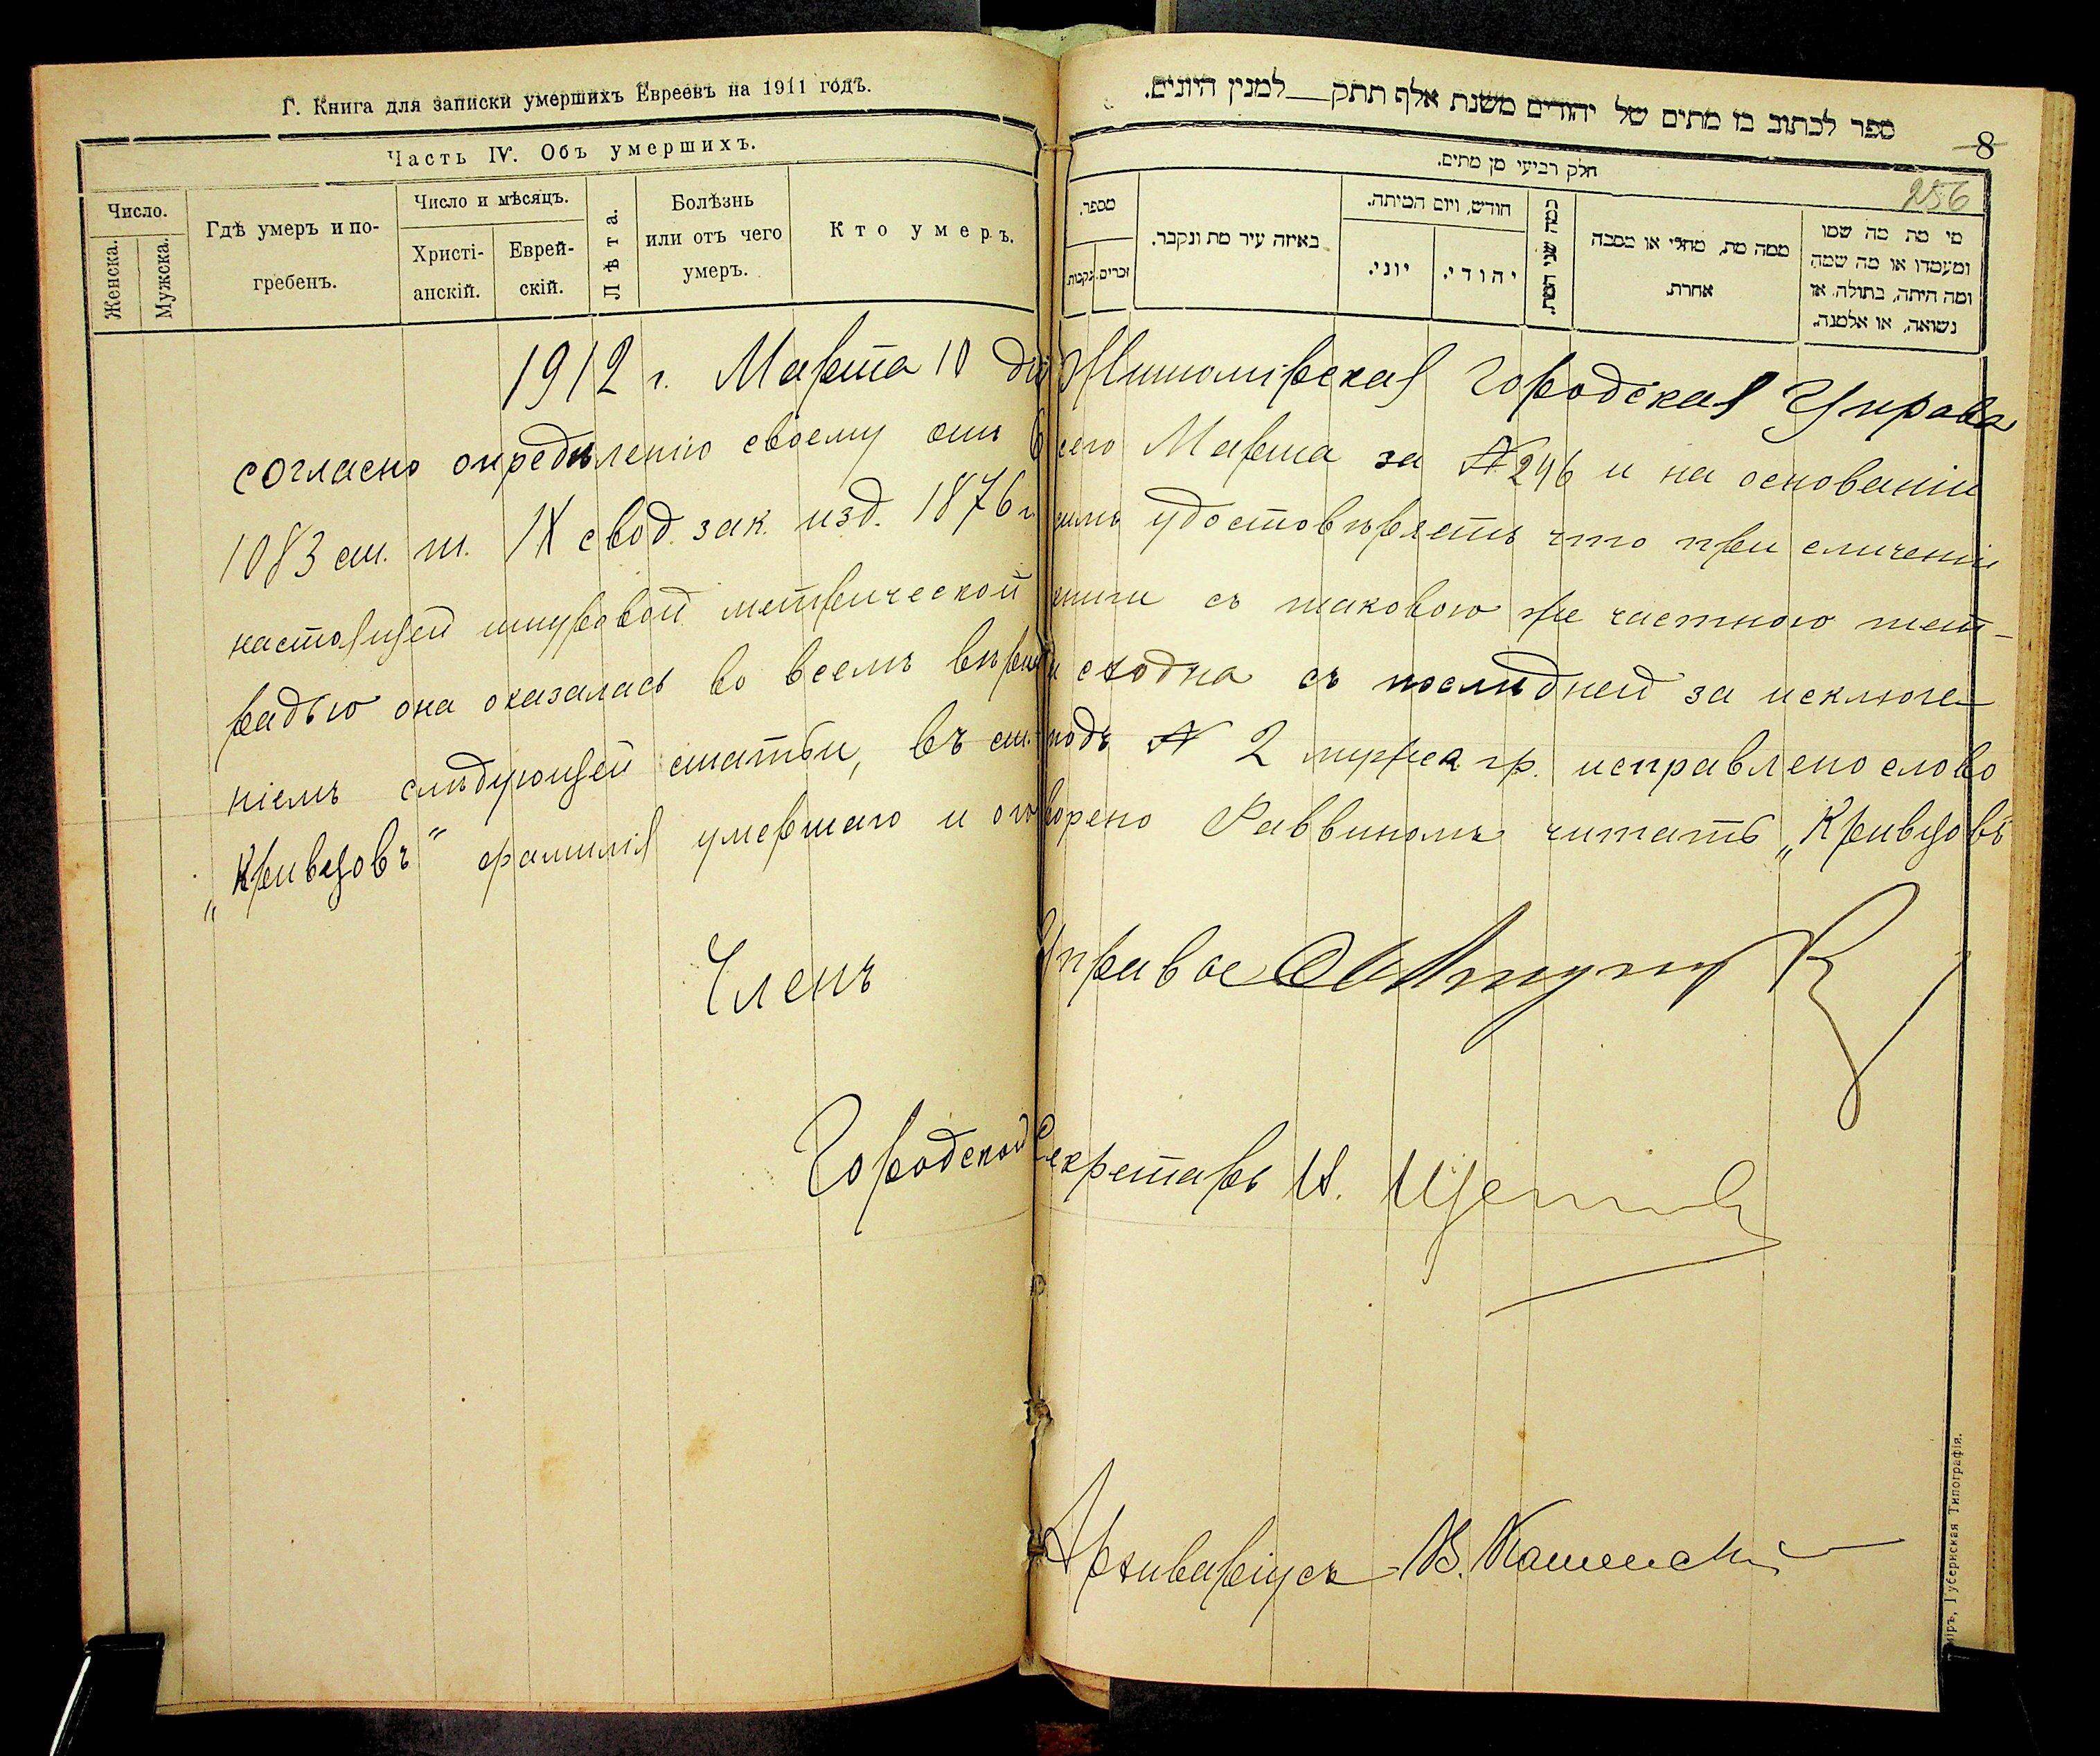 Г. Книга для записки умершихъ Евреевъ на 1911 годъ.
Часть IV. Объ умершихъ.
Число.
Женска.
Мужска.
Гдѣ умеръ и по-
гребенъ.
Число и мѣсяцъ.
Христі-
анскій.
Еврей-
скій.
Лѣта.
Болѣзнь
или отъ чего
умеръ.
Кто умеръ.
ספר לכתוב בו מתים של יהודים משנת אלף תתק__למנין היונים.
8
256
חלק רביעי מן מתים.
מספר.
זכרים.
נקבות.
באיזה עיר מת ונקבר.
חודש, ויום המיתה.
יוני.
יהודי.
כמה שני המת.
ממה מת, מחלי או מסבה
אחרת.
מי מת מה שמו
ומעמדו או מה שמה
ומה היתה, בתולה, או
נשואה, או אלמנה.
1912 г. Марта 10 дня Житомірская Городская Управа
согласно опредѣленію своему отъ 6 сего Марта за № 246 и на основаніи
1083 ст. т. IX свод. зак. изд. 1876 г. симъ удостовѣряетъ что при сличеніи
настоящей шнуровой метрической книги съ таковою же частною тет-
радью она оказалась во всемъ вѣрна и сходна съ послѣдней за исключе-
ніемъ слѣдующей статьи, въ ст. подъ № 2 мужск гр. исправлено слово
„Кривцовъ“ фамилія умершаго и оговорено Раввиномъ читать „Кривцовъ
Членъ Управы
Городской Секретарь И.
Архиваріусъ В. Каменскій
Губернская Типографія.